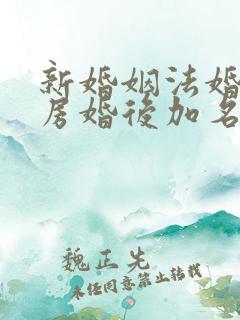 新婚姻法婚
房婚後加名
魏正先
未经同意禁止转载